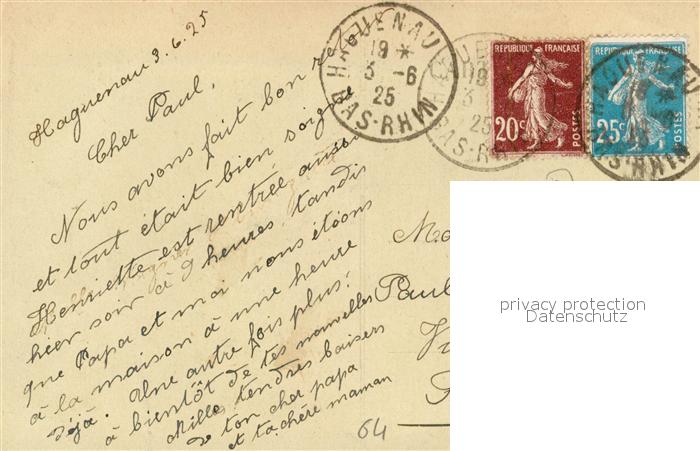 Haguenau 3.6.25
Cher Paul,
Nous avons fait bon retour
et tout était bien soigné
Henriette est rentrée aussi
hier soir à 9 heures, tandis
que Papa et moi nous étions
à la maison à une heure
déjà. Une autre fois plus.
à bientôt de tes nouvelles
Mille tendres baisers
de ton cher papa
et ta chère maman
64
HAGUENAU
19 *
3 -6
25
BAS-RHIN
REPUBLIQUE FRANÇAISE
20c
POSTES
REPUBLIQUE FRANÇAISE
25c
POSTES
HAGUENAU
BAS-RHIN
Paul
privacy protection
Datenschutz